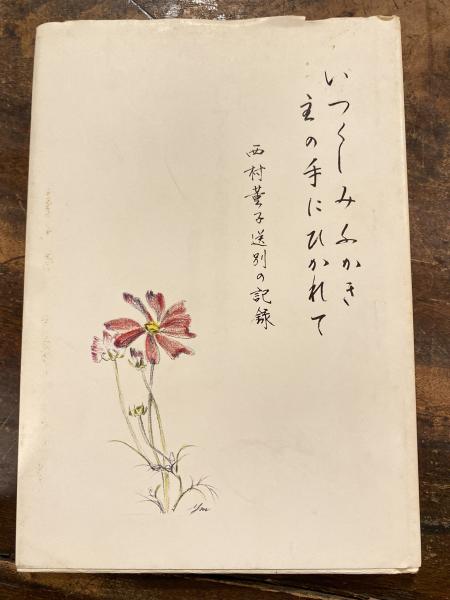 いつくしみふかき
主の手にひかれて
西村薫子送別の記録